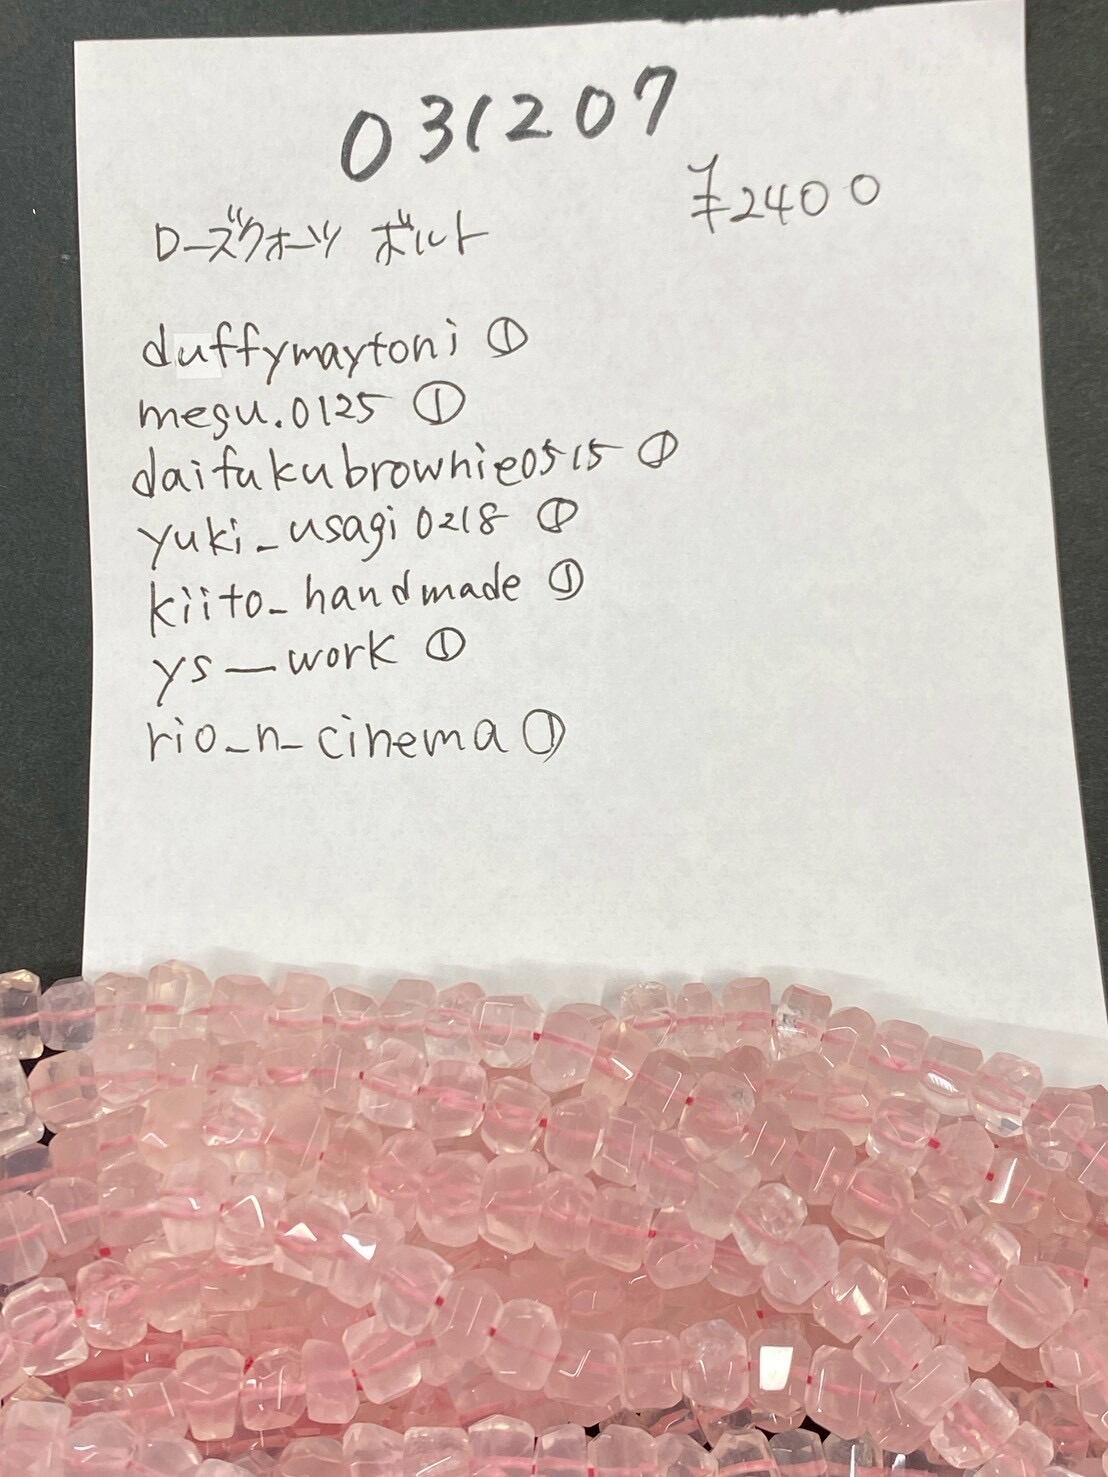 031207
¥2400
ローズクオーツ ボルト
duffymaytoni ①
megu.0125 ①
daifukubrownie0515 ①
yuki_usagi0218 ①
kiito_handmade ①
ys__work ①
rio_n_cinema ①